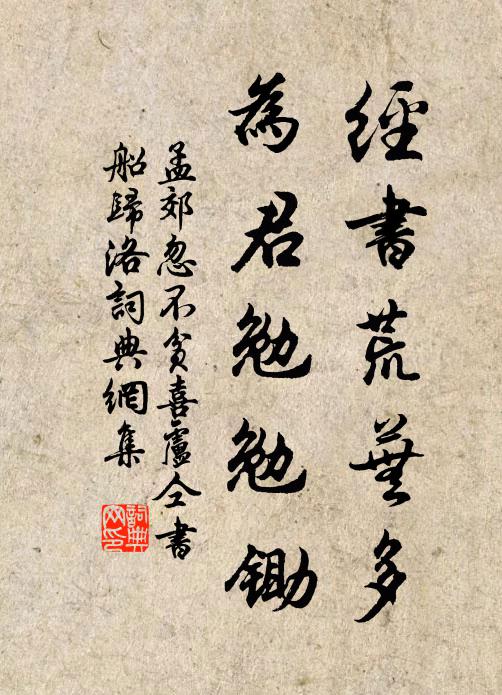 經書荒蕪多
為君勉勉鋤
孟郊忽不貧喜盧仝書
船歸洛詞典網集
詞典
網印